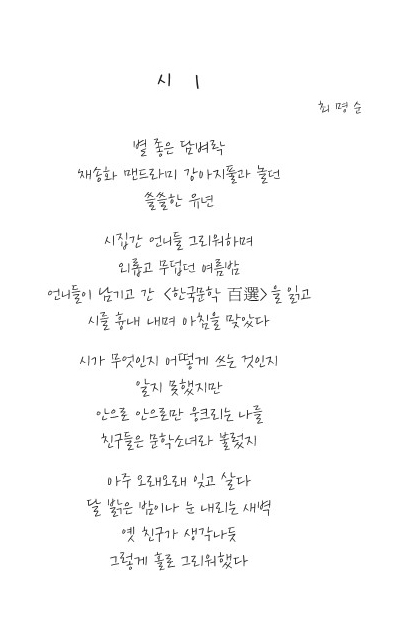 시 1
최명순
볕 좋은 담벼락
채송화 맨드라미 강아지풀과 놀던
쓸쓸한 유년
시집간 언니들 그리워하며
외롭고 무덥던 여름밤
언니들이 남기고 간 <한국문학 百選>을 읽고
시를 흉내 내며 아침을 맞았다
시가 무엇인지 어떻게 쓰는 것인지
알지 못했지만
안으로 안으로만 웅크리는 나를
친구들은 문학소녀라 불렀지
아주 오래오래 잊고 살다
달 밝은 밤이나 눈 내리는 새벽
옛 친구가 생각나듯
그렇게 홀로 그리워했다